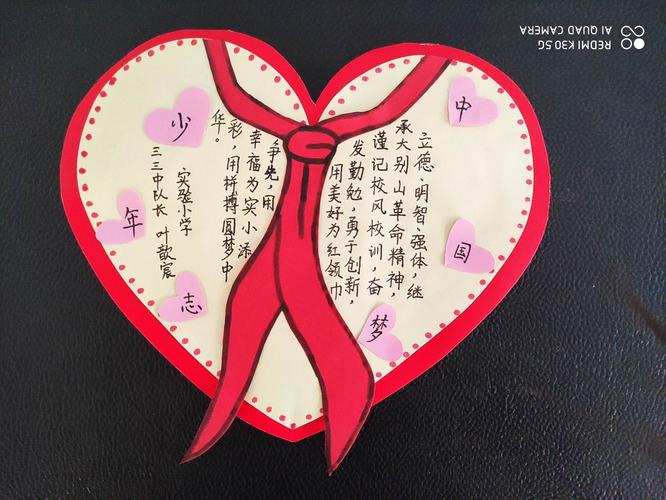 中
国
梦
立德、明智、强体，继
承大别山革命精神，
谨记校风校训，奋
发勤勉，勇于创新，
用美好为红领巾
争先，用
幸福为实小添
彩，用拼搏圆梦中
华。
实验小学
三三中队长 叶歆宸
少
年
志
REDMI K30 5G
AI QUAD CAMERA